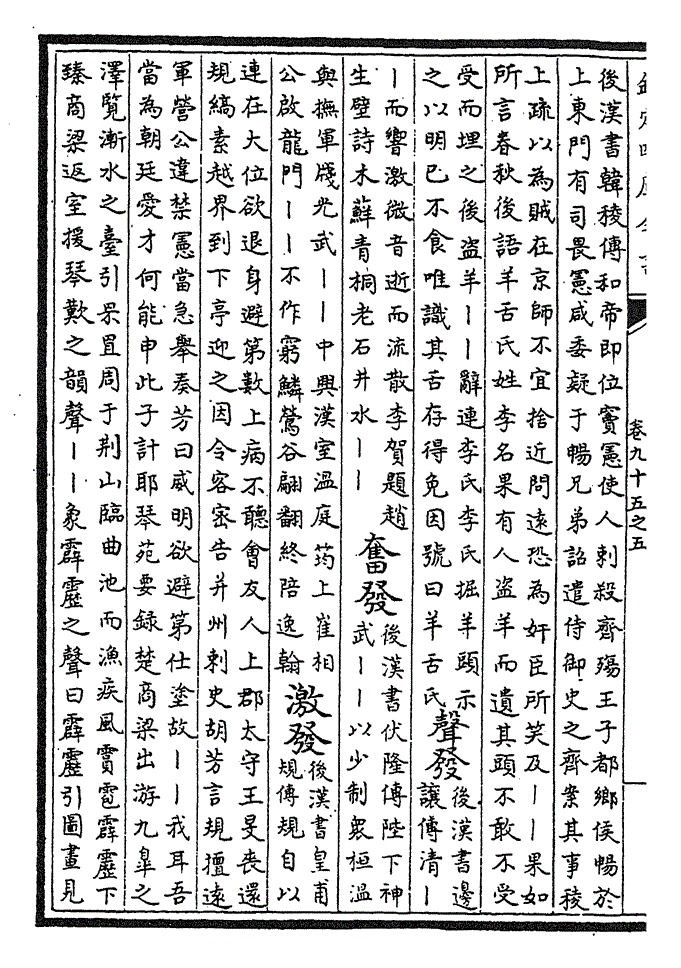 欽定四庫全書
卷九十五之五
後漢書韓稜傳和帝即位竇憲使人刺殺齊殤王子都鄉侯暢於
上東門有司畏憲咸委疑于暢兄弟詔遣侍御史之齊案其事稜
上疏以為賊在京師不宜捨近問遠恐為奸臣所笑及丨丨果如
所言春秋後語羊舌氏姓李名果有人盜羊而遺其頭不敢不受
受而埋之後盜羊丨丨辭連李氏李氏掘羊頭示
之以明已不食唯識其舌存得免因號曰羊舌氏
聲發
後漢書邊
讓傳清丨
丨而響激微音逝而流散李賀題趙
生壁詩木蘇青桐老石井水丨丨
奮發
後漢書伏隆傳陛下神
武丨丨以少制衆桓溫
與撫軍牋光武丨丨中興漢室溫庭筠上崔相
公啟龍門丨丨不作窮鱗鶯谷翩翻終陪逸翰
激發
後漢書皇甫
規傳規自以
連在大位欲退身避第數上病不聽會友人上郡太守王旻喪還
規縞素越界到下亭迎之因令客密告并州刺史胡芳言規擅遠
軍營公違禁憲當急舉奏芳曰威明欲避第仕塗故丨丨我耳吾
當為朝廷愛才何能申此子計耶琴苑要録楚商梁出游九臯之
澤覽漸水之臺引罘罝周于荆山臨曲池而漁疾風霣雹霹靂下
臻商梁返室援琴歎之韻聲丨丨象霹靂之聲曰霹靂引圖畫見